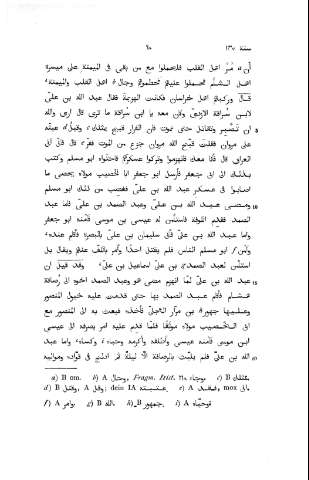 سنة ١٣٧ ٩٥
أن مُرْ اهل القلب فليحملوا مع من بقى فى الميمنة على ميسرة
اهل الشأم فحملوا عليهم فحطموهم وجال اهل القلب والميمنة
قال وركبهم اهل خراسان فكانت الهزيمة فقال عبد الله بن على
لابن سراقة الازدى وكان معه يا ابن سراقة ما ترى قال ارى والله
5 ان تصبر وتقاتل حتى تموت فان الفرار قبيح بمثلك وقبل عبتَه
على مروان فقلت قبّح الله مروان جزع من الموت ففرّ قال فانّى آتى
العراق قال فأنا معك فانهزموا وتركوا عسكرهم فاحتواه ابو مسلم وكتب
بذلك الى ابى جعفر فأرسل ابو جعفر ابا الخصيب مولاه يحصى ما
اصابوا فى عسكر عبد الله بن على فغضب من ذلك ابو مسلم
10 ومضى عبد الله بن على وعبد الصمد بن على فاما عبد
الصمد فقدم الكوفة فاستأمن له عيسى بن موسى فآمنه ابو جعفر
واما عبد الله بن على فأتى سليمان بن على بالبصرة فأقام عنده
وآمن ابو مسلم الناس فلم يقتل احدًا وأمر بالكفّ عنهم ويقال بل
استأمن لعبد الصمد بن على اسماعيل بن على وقد قيل ان
15 عبد الله بن على لمّا انهزم مضى هو وعبد الصمد اخوه الى رُصافة
هشام فأقام عبد الصمد بها حتى قدمت عليه خيول المنصور
وعليها جهور بن مرّار العجلىّ فأخذه فبعث به الى المنصور مع
ابى الخصيب مولاه موثقًا فلمّا قدم عليه امر بصرفه الى عيسى
ابن موسى فآمنه عيسى وأطلقه وأكرمه وحباه وكساه واما عبد
20 الله بن على فلم يلبث بالرصافة الّا ليلةً ثم ادلج فى قوّاده ومواليه
a) B om. b) A وجال, Fragm. Hist. ٢١٠ c) B
d) B ; A وقبل; dein IA e) A , mox
f) A وامر g) B بالله h) B جمهور i) A